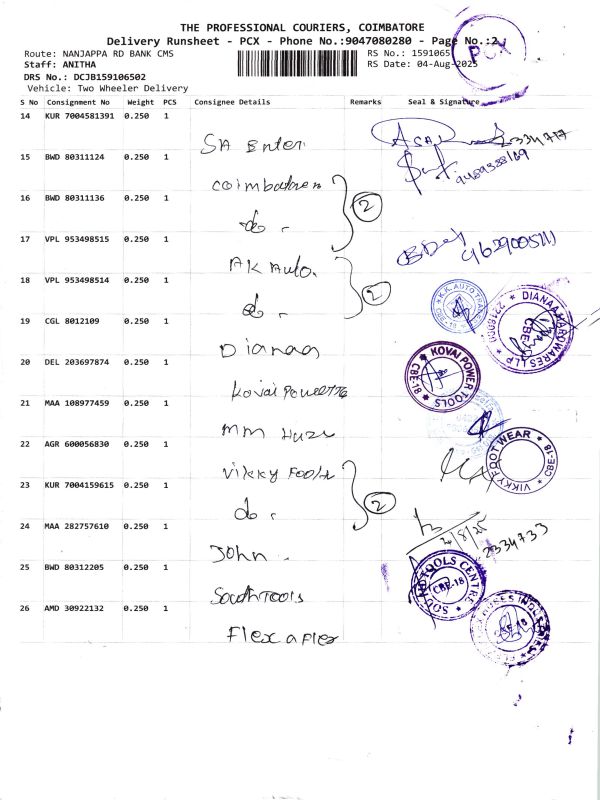 THE PROFESSIONAL COURIERS, COIMBATORE
Delivery Runsheet - PCX - Phone No.:9047080280 - Page No.:2
Route: NANJAPPA RD BANK CMS RS No.: 1591065
Staff: ANITHA RS Date: 04-Aug-2025
DRS No.: DCJB159106502
Vehicle: Two Wheeler Delivery
PCX
S No Consignment No Weight PCS Consignee Details Remarks Seal & Signature
14 KUR 7004581391 0.250 1
SA Enter
2334717
15 BWD 80311124 0.250 1
Coimbatore
16 BWD 80311136 0.250 1
do. 2
17 VPL 953498515 0.250 1
AK Auto.
18 VPL 953498514 0.250 1
do. 2
19 CGL 8012109 0.250 1
Dianaa
DIANAA HARDWARES LLP CBE
20 DEL 203697874 0.250 1
KOVAI POWER TOOLS CBE-18
21 MAA 108977459 0.250 1
MM
22 AGR 600056830 0.250 1
Vikky
VIKKY FOOT WEAR CBE-18
23 KUR 7004159615 0.250 1
do. 2
24 MAA 282757610 0.250 1
John
4/8/25
2334733
25 BWD 80312205 0.250 1
South Tools
SOUND TOOLS CENTRE CBE-18
26 AMD 30922132 0.250 1
Flex